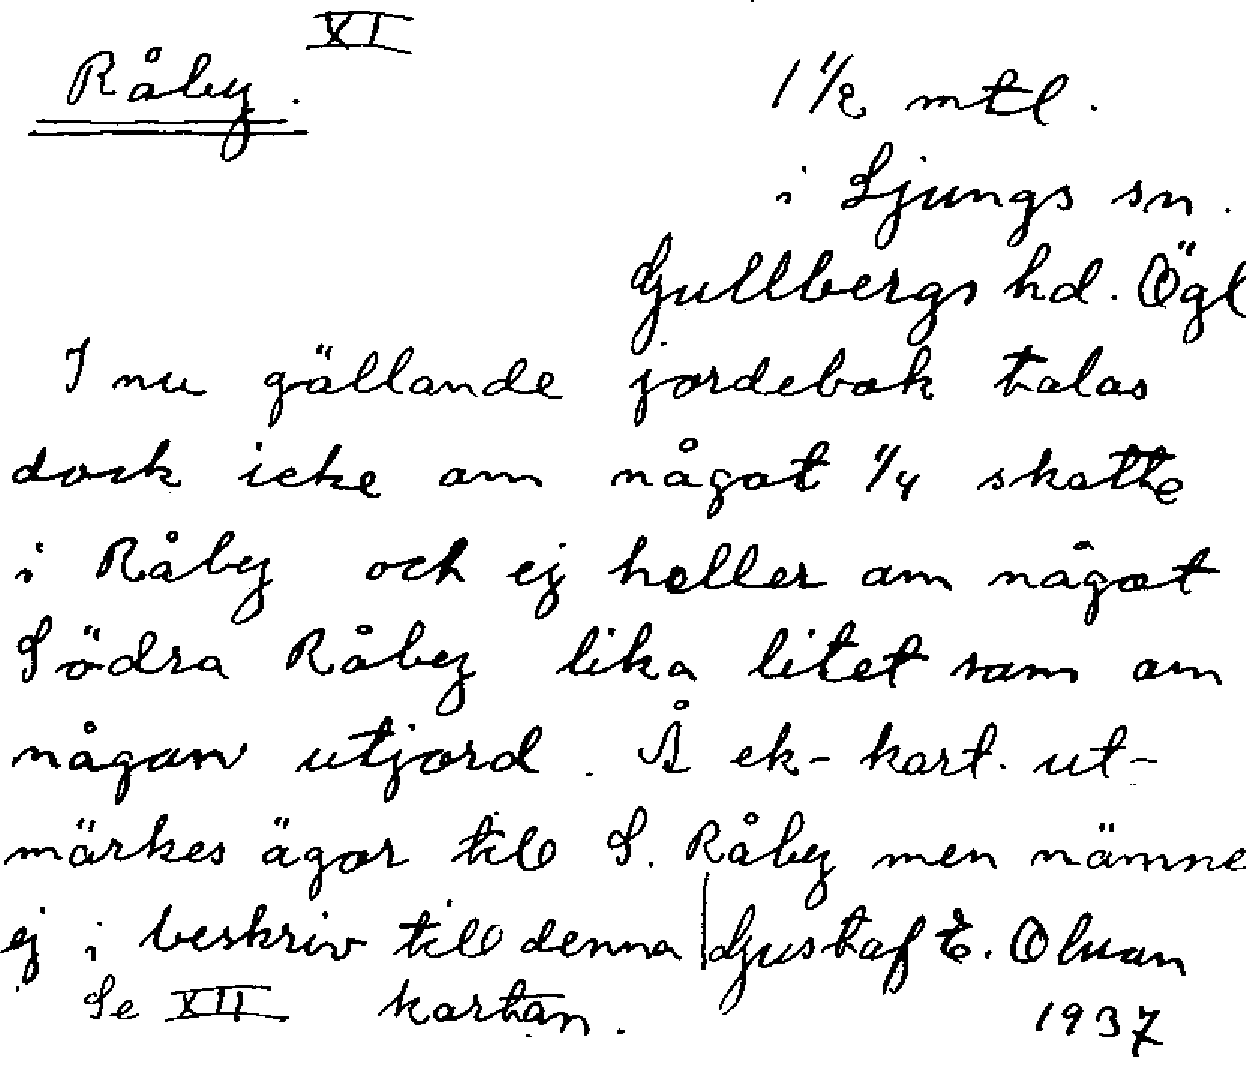 XI
Råby.
1 1/2 mtl.
i Ljungs sn.
Gullbergs hd. Ögl
I nu gällande jordebok talas
dock icke om något 1/4 skatte
i Råby och ej heller om något
Södra Råby lika litet som om
någon utjord. Å ek-kart. ut-
märkes ägor till S. Råby men nämne
ej i beskriv till denna | Gustaf E. Olson
Se XII kartan. 1937